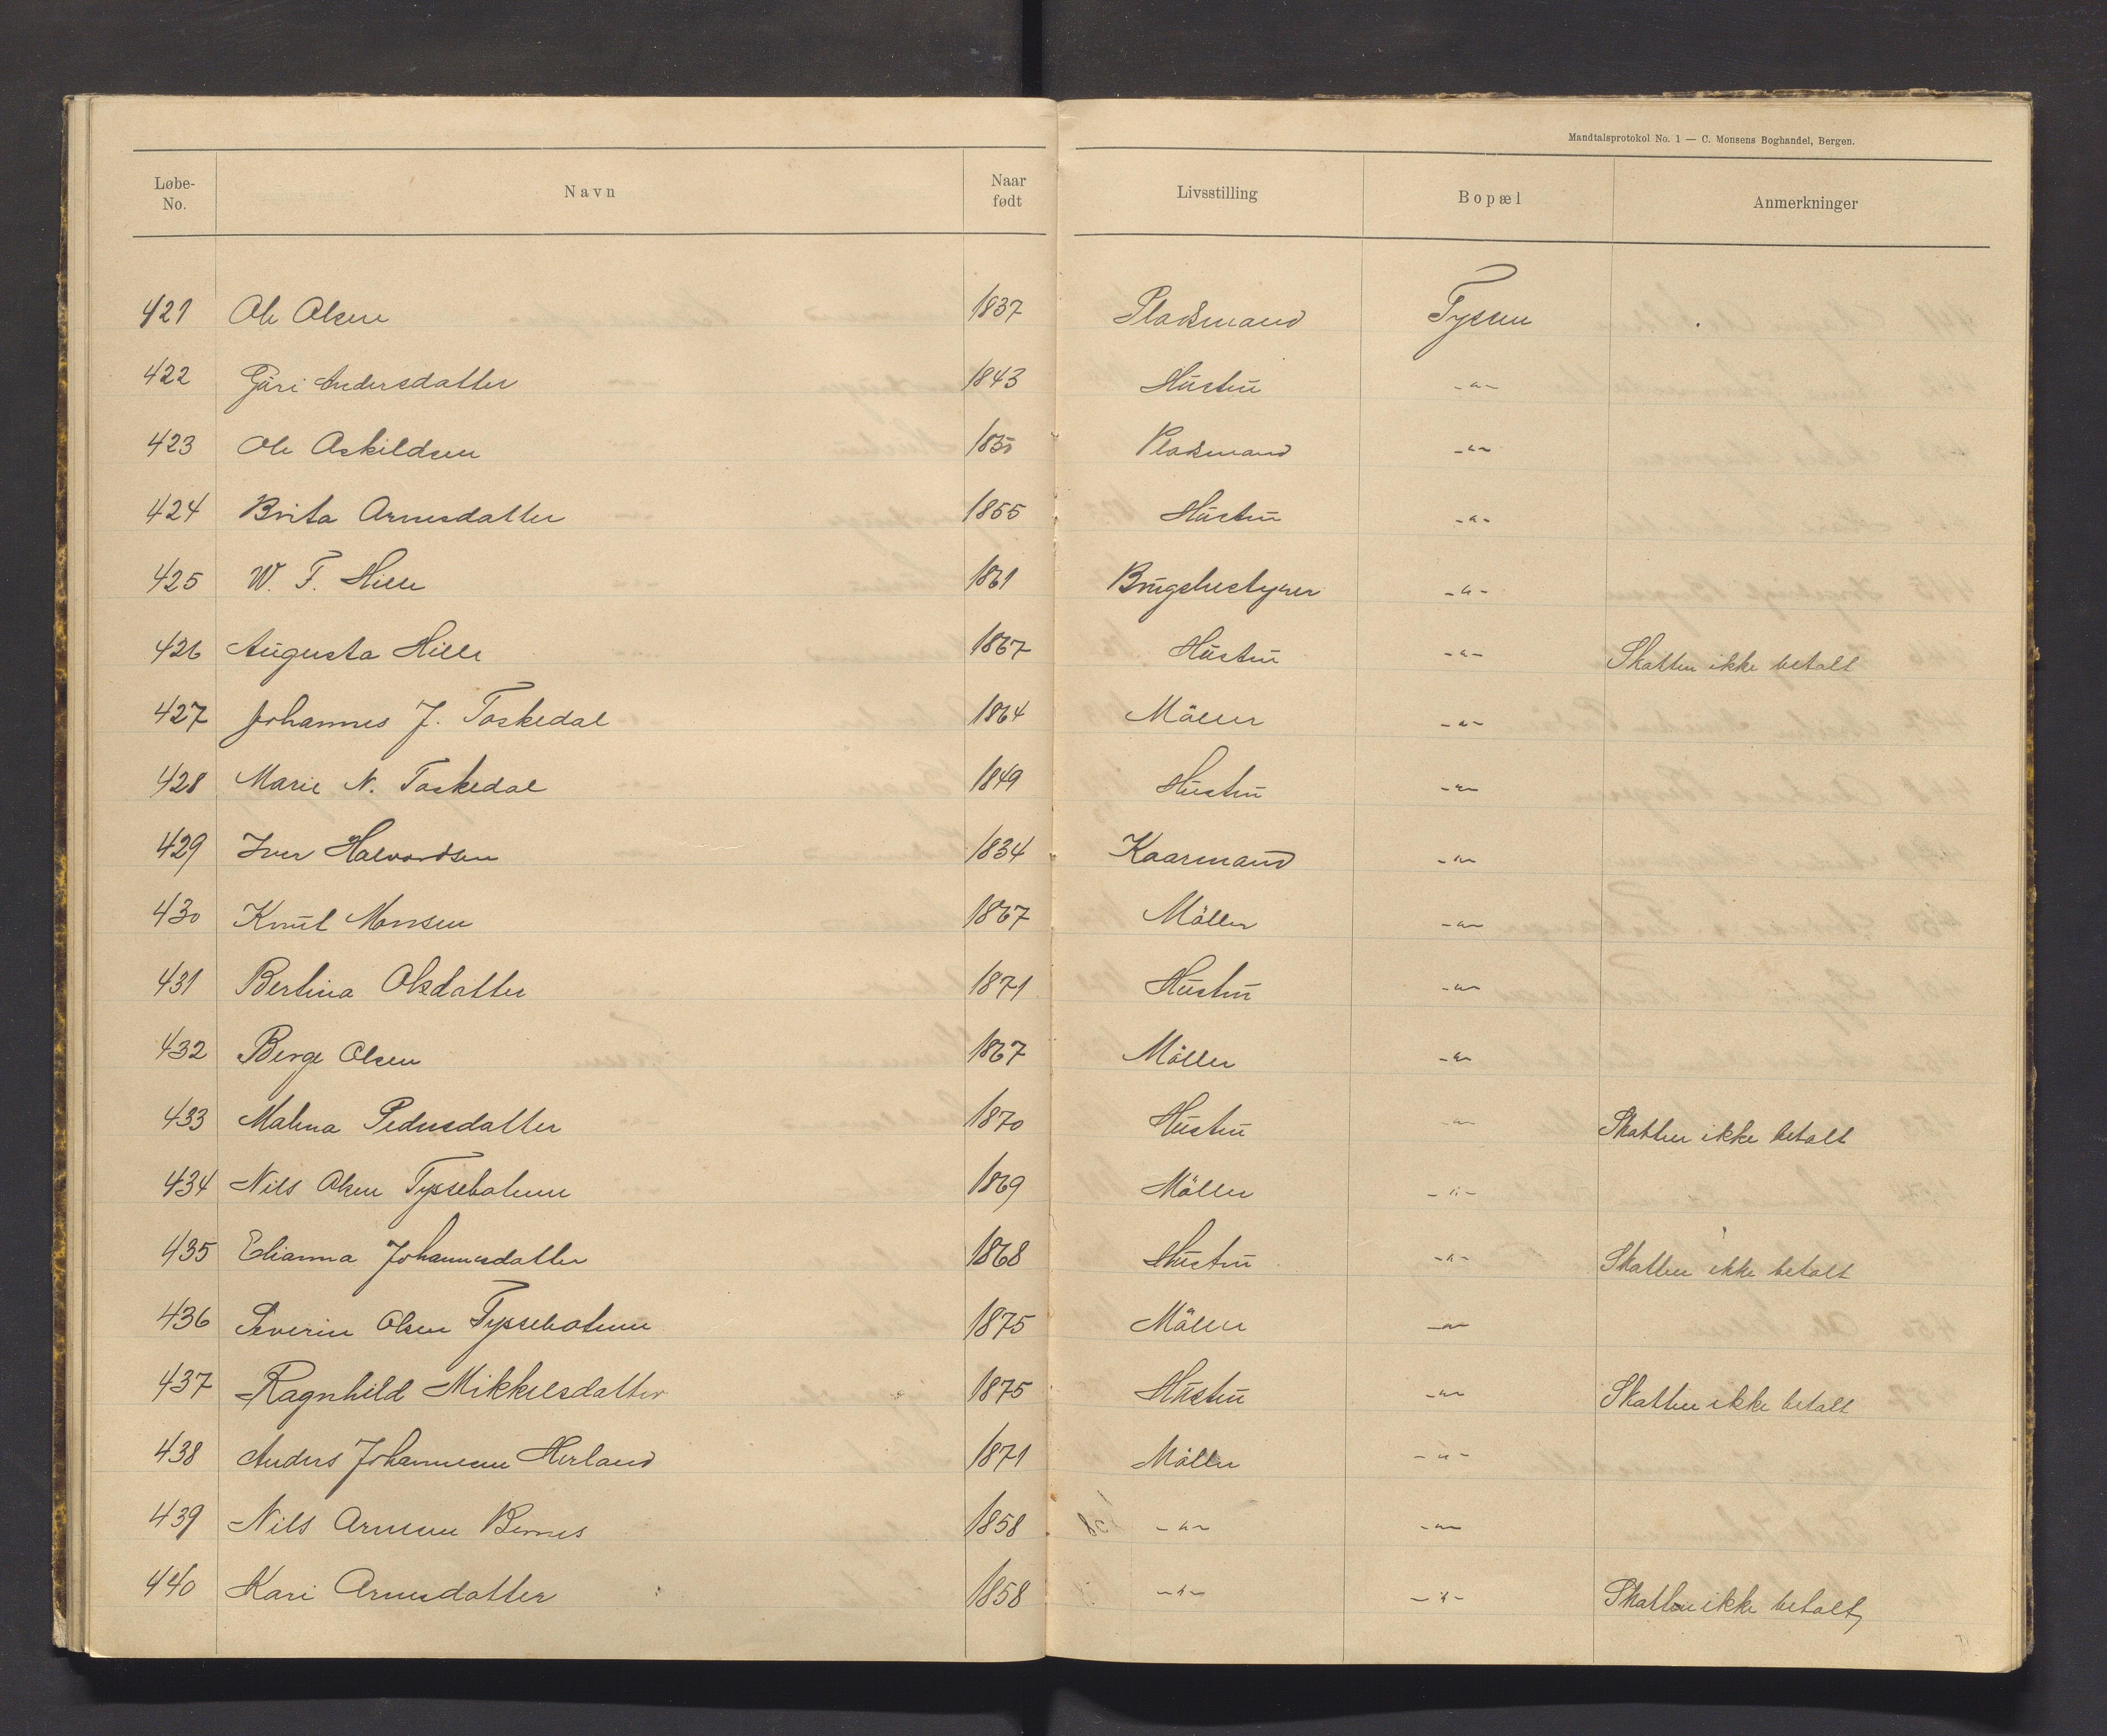 Mandtalsprotokol No. 1 — C. Monsens Boghandel, Bergen.
Løbe-No. Navn Naar født Livsstilling Bopæl Anmerkninger
421 Ole Olsen 1837 Pladsmand Tyssen
422 Güri Andersdatter 1843 Hüstrü -"-
423 Ole Askildsen 1835 Pladsmand -"-
424 Brita Arnesdatter 1855 Hüstrü -"-
425 W. F. Hille 1861 Brügsbestyrer -"-
426 Aügusta Hille 1867 Hüstrü -"- Skatten ikke betalt
427 Johannes J. Toskedal 1864 Möller -"-
428 Marie N. Toskedal 1849 Hüstrü -"-
429 Iver Halvordsen 1834 Kaarmand -"-
430 Knüt Monsen 1867 Möller -"-
431 Bertina Olsdatter 1871 Hüstrü -"-
432 Berge Olsen 1867 Möller -"-
433 Malena Pedersdatter 1870 Hüstrü -"- Skatten ikke betalt
434 Nils Olsen Tyssebotnen 1869 Möller -"-
435 Elianna Johannesdatter 1868 Hüstrü -"- Skatten ikke betalt
436 Severin Olsen Tyssebotnen 1875 Möller -"-
437 Ragnhild Mikkelsdatter 1875 Hüstrü -"- Skatten ikke betalt
438 Anders Johannesen Herland 1871 Möller -"-
439 Nils Arnesen Bernes 1858 -"- -"-
440 Kari Arnesdatter 1858 -"- -"- Skatten ikke betalt,